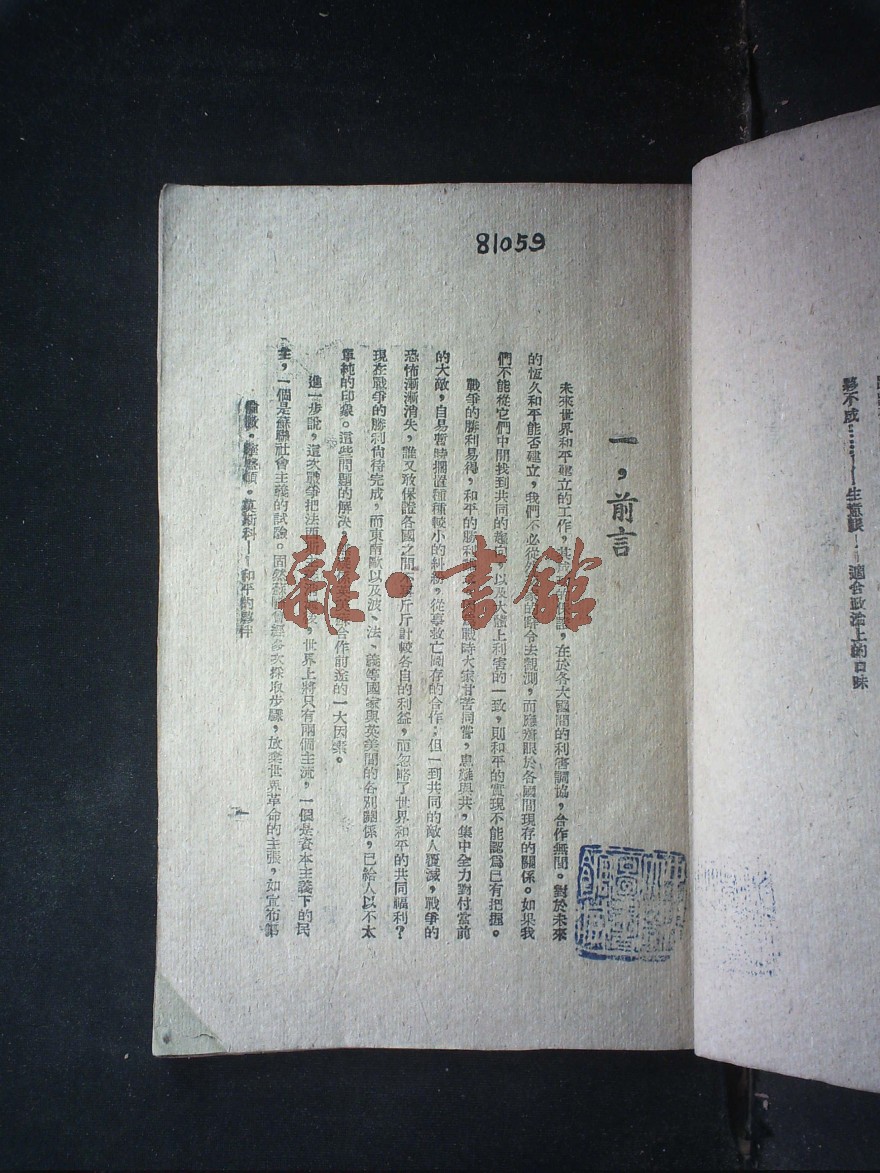 81059
一，前言
未來世界和平建立的工作，其在於各大國間的利害調協，合作無間。對於未來
的恆久和平能否建立，我們不必從去觀測，而應着眼於各國間現存的關係。如果我
們不能從它們中間找到共同的趨向，以及大體上利害的一致，則和平的實現不能認爲已有把握。
戰爭的勝利易得，和平的勝利戰時大家甘苦同嘗，患難與共，集中全力對付當前
的大敵，自易暫時擱置種種較小的糾紛，從事救亡圖存的合作；但一到共同的敵人覆滅，戰爭的
恐怖漸漸消失，誰又敢保證各國之間不斤斤計較各自的利益，而忽略了世界和平的共同福利？
現在戰爭的勝利尙待完成，而東南歐以及波、法、義等國家與英美間的各別關係，已給人以不太
單純的印象。這些問題的解決，合作前途的一大因素。
進一步說，這次戰爭把法西斯世界上將只有兩個主流，一個是資本主義下的民
主，一個是蘇聯社會主義的試驗。固然蘇聯曾經多次採取步驟，放棄世界革命的主張，如宣布第
倫敦．華盛頓．莫斯科——和平的夥伴
一
雜·書館
夥不成……——生意眼——適合政治上的口味